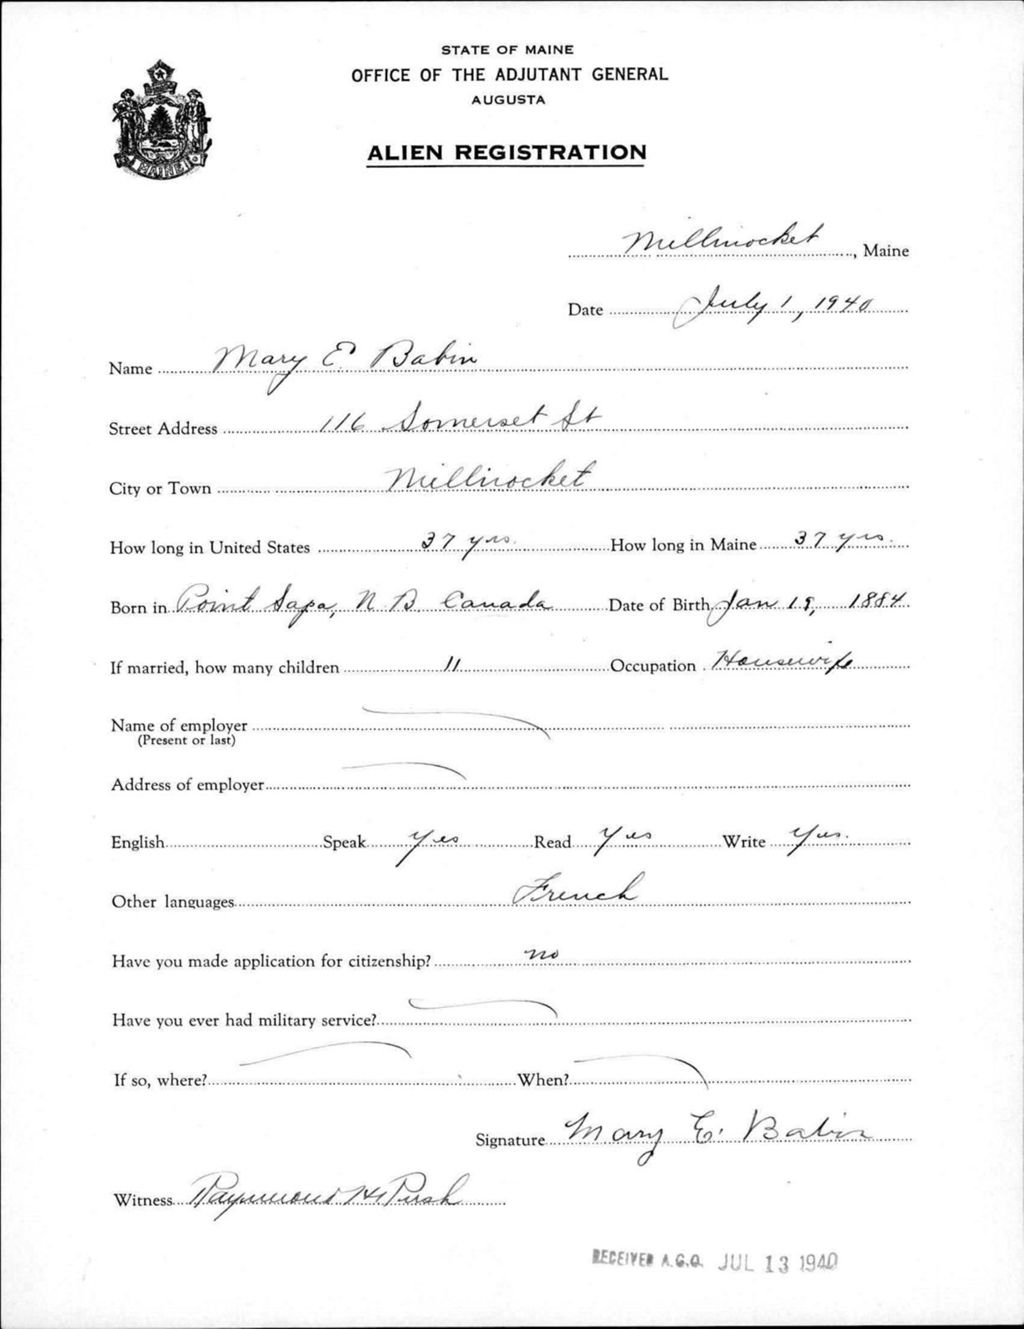 STATE OF MAINE
OFFICE OF THE ADJUTANT GENERAL
AUGUSTA
ALIEN REGISTRATION
MAINE
Millinocket, Maine
Date July 1, 1940
Name Mary E. Babin
Street Address 116 Somerset St
City or Town Millinocket
How long in United States 37 yrs. How long in Maine 37 yrs.
Born in Point Sapa, N B Canada Date of Birth Jan 19, 1884
If married, how many children 11 Occupation Housewife
Name of employer
(Present or last)
Address of employer
English Speak Yes Read Yes Write Yes.
Other languages French
Have you made application for citizenship? no
Have you ever had military service?
If so, where? When?
Signature Mary E. Babin
Witness Raymond H Rush
RECEIVED A.G.O. JUL 13 1940